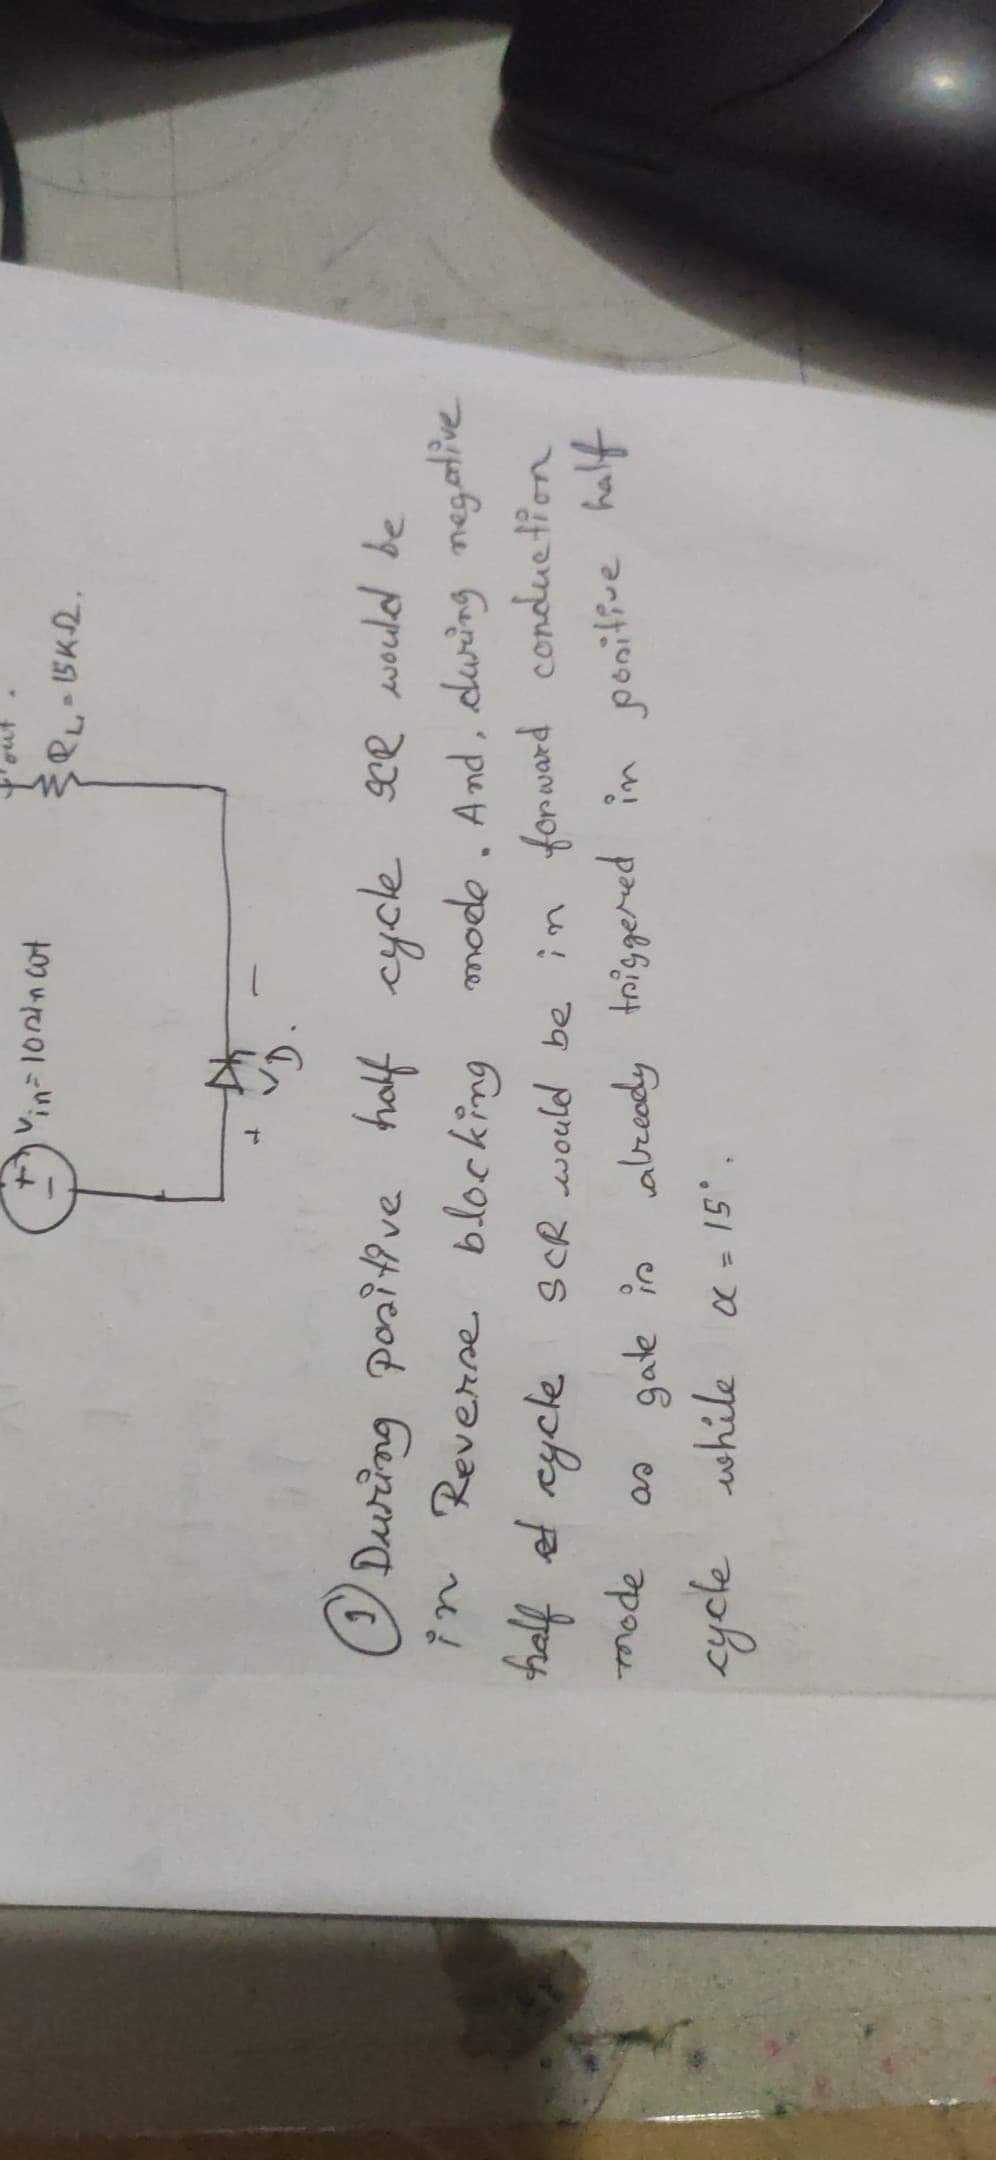 Vin = 10 sin ωt
RL = 15KΩ.
+ VD. -
① During positive half cycle SCR would be
in Reverse blocking mode. And, during negative
half of cycle SCR would be in forward conduction
mode as gate is already triggered in positive half
cycle while α = 15°.